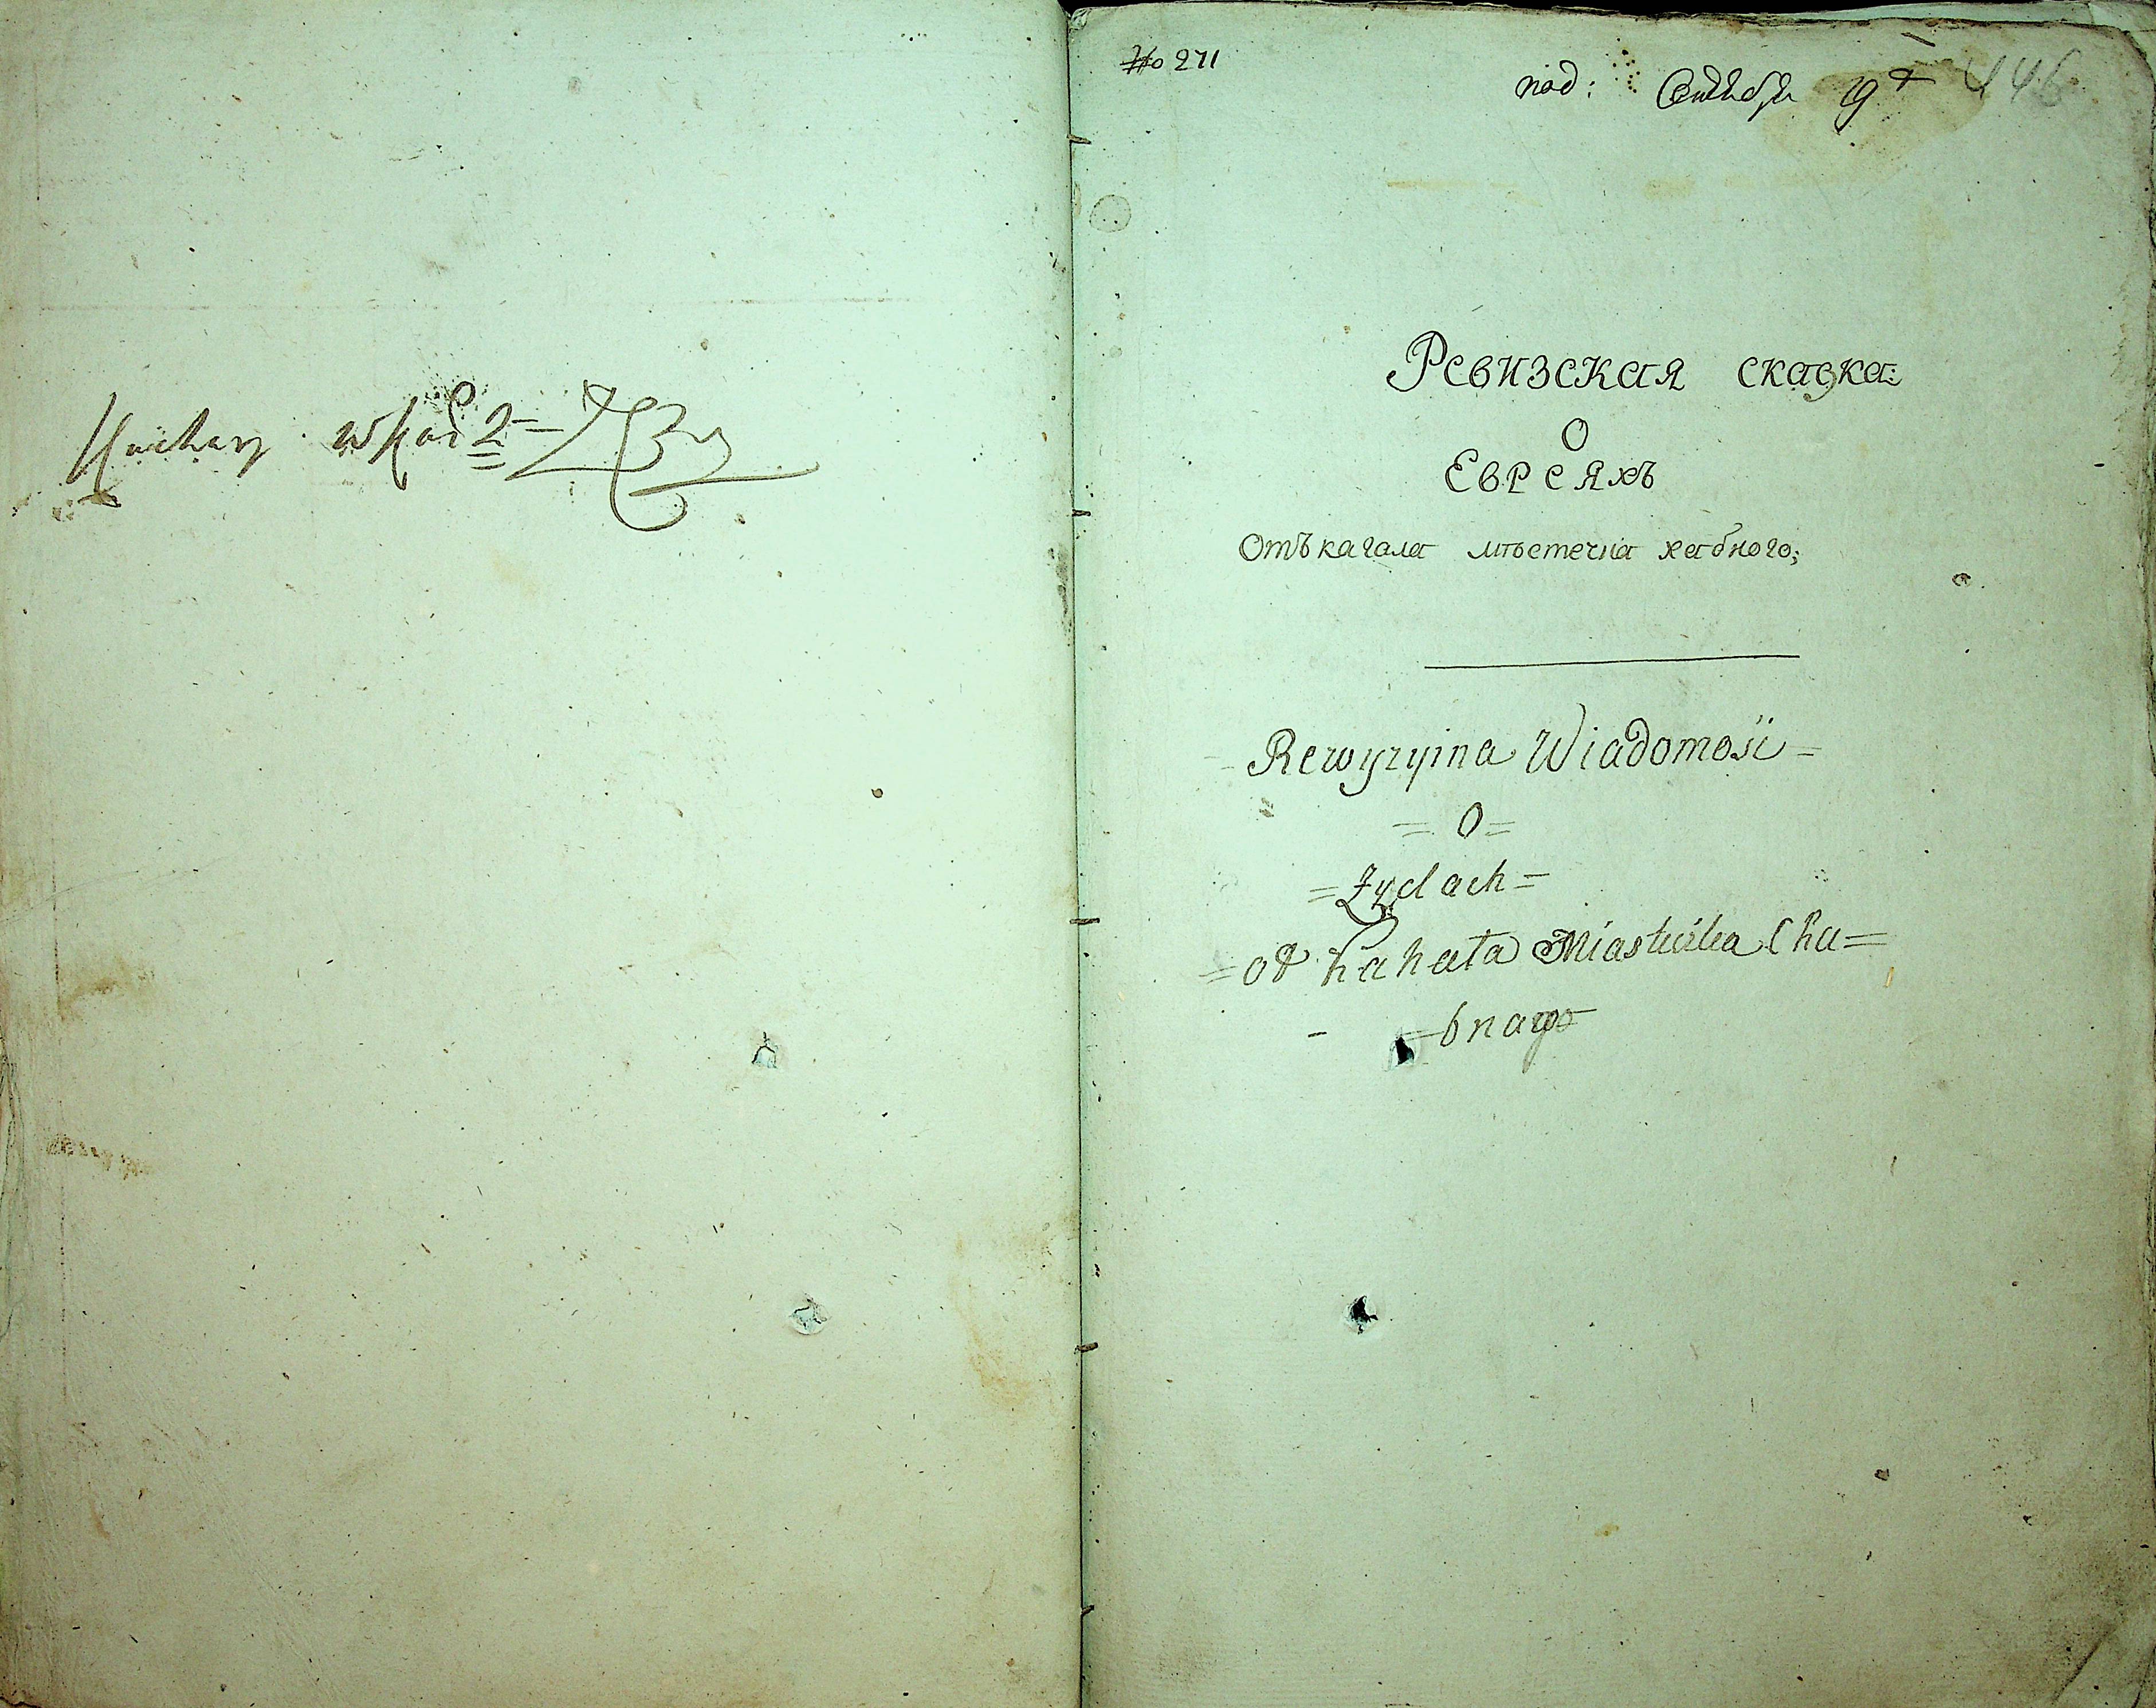 № 271
под: Сентября 9 446
Ревизская скаска:
О
Евреяхъ
Отъ кагала мѣстечка хабного;
Rewyzyina Wiadomość =
= O =
= Żydach =
= od Kahała Miasteczka Cha=
=bnago